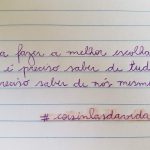 a fazer a melhor escolha
é preciso saber de tud
preciso saber de nós mesm
#coisinhasdavida